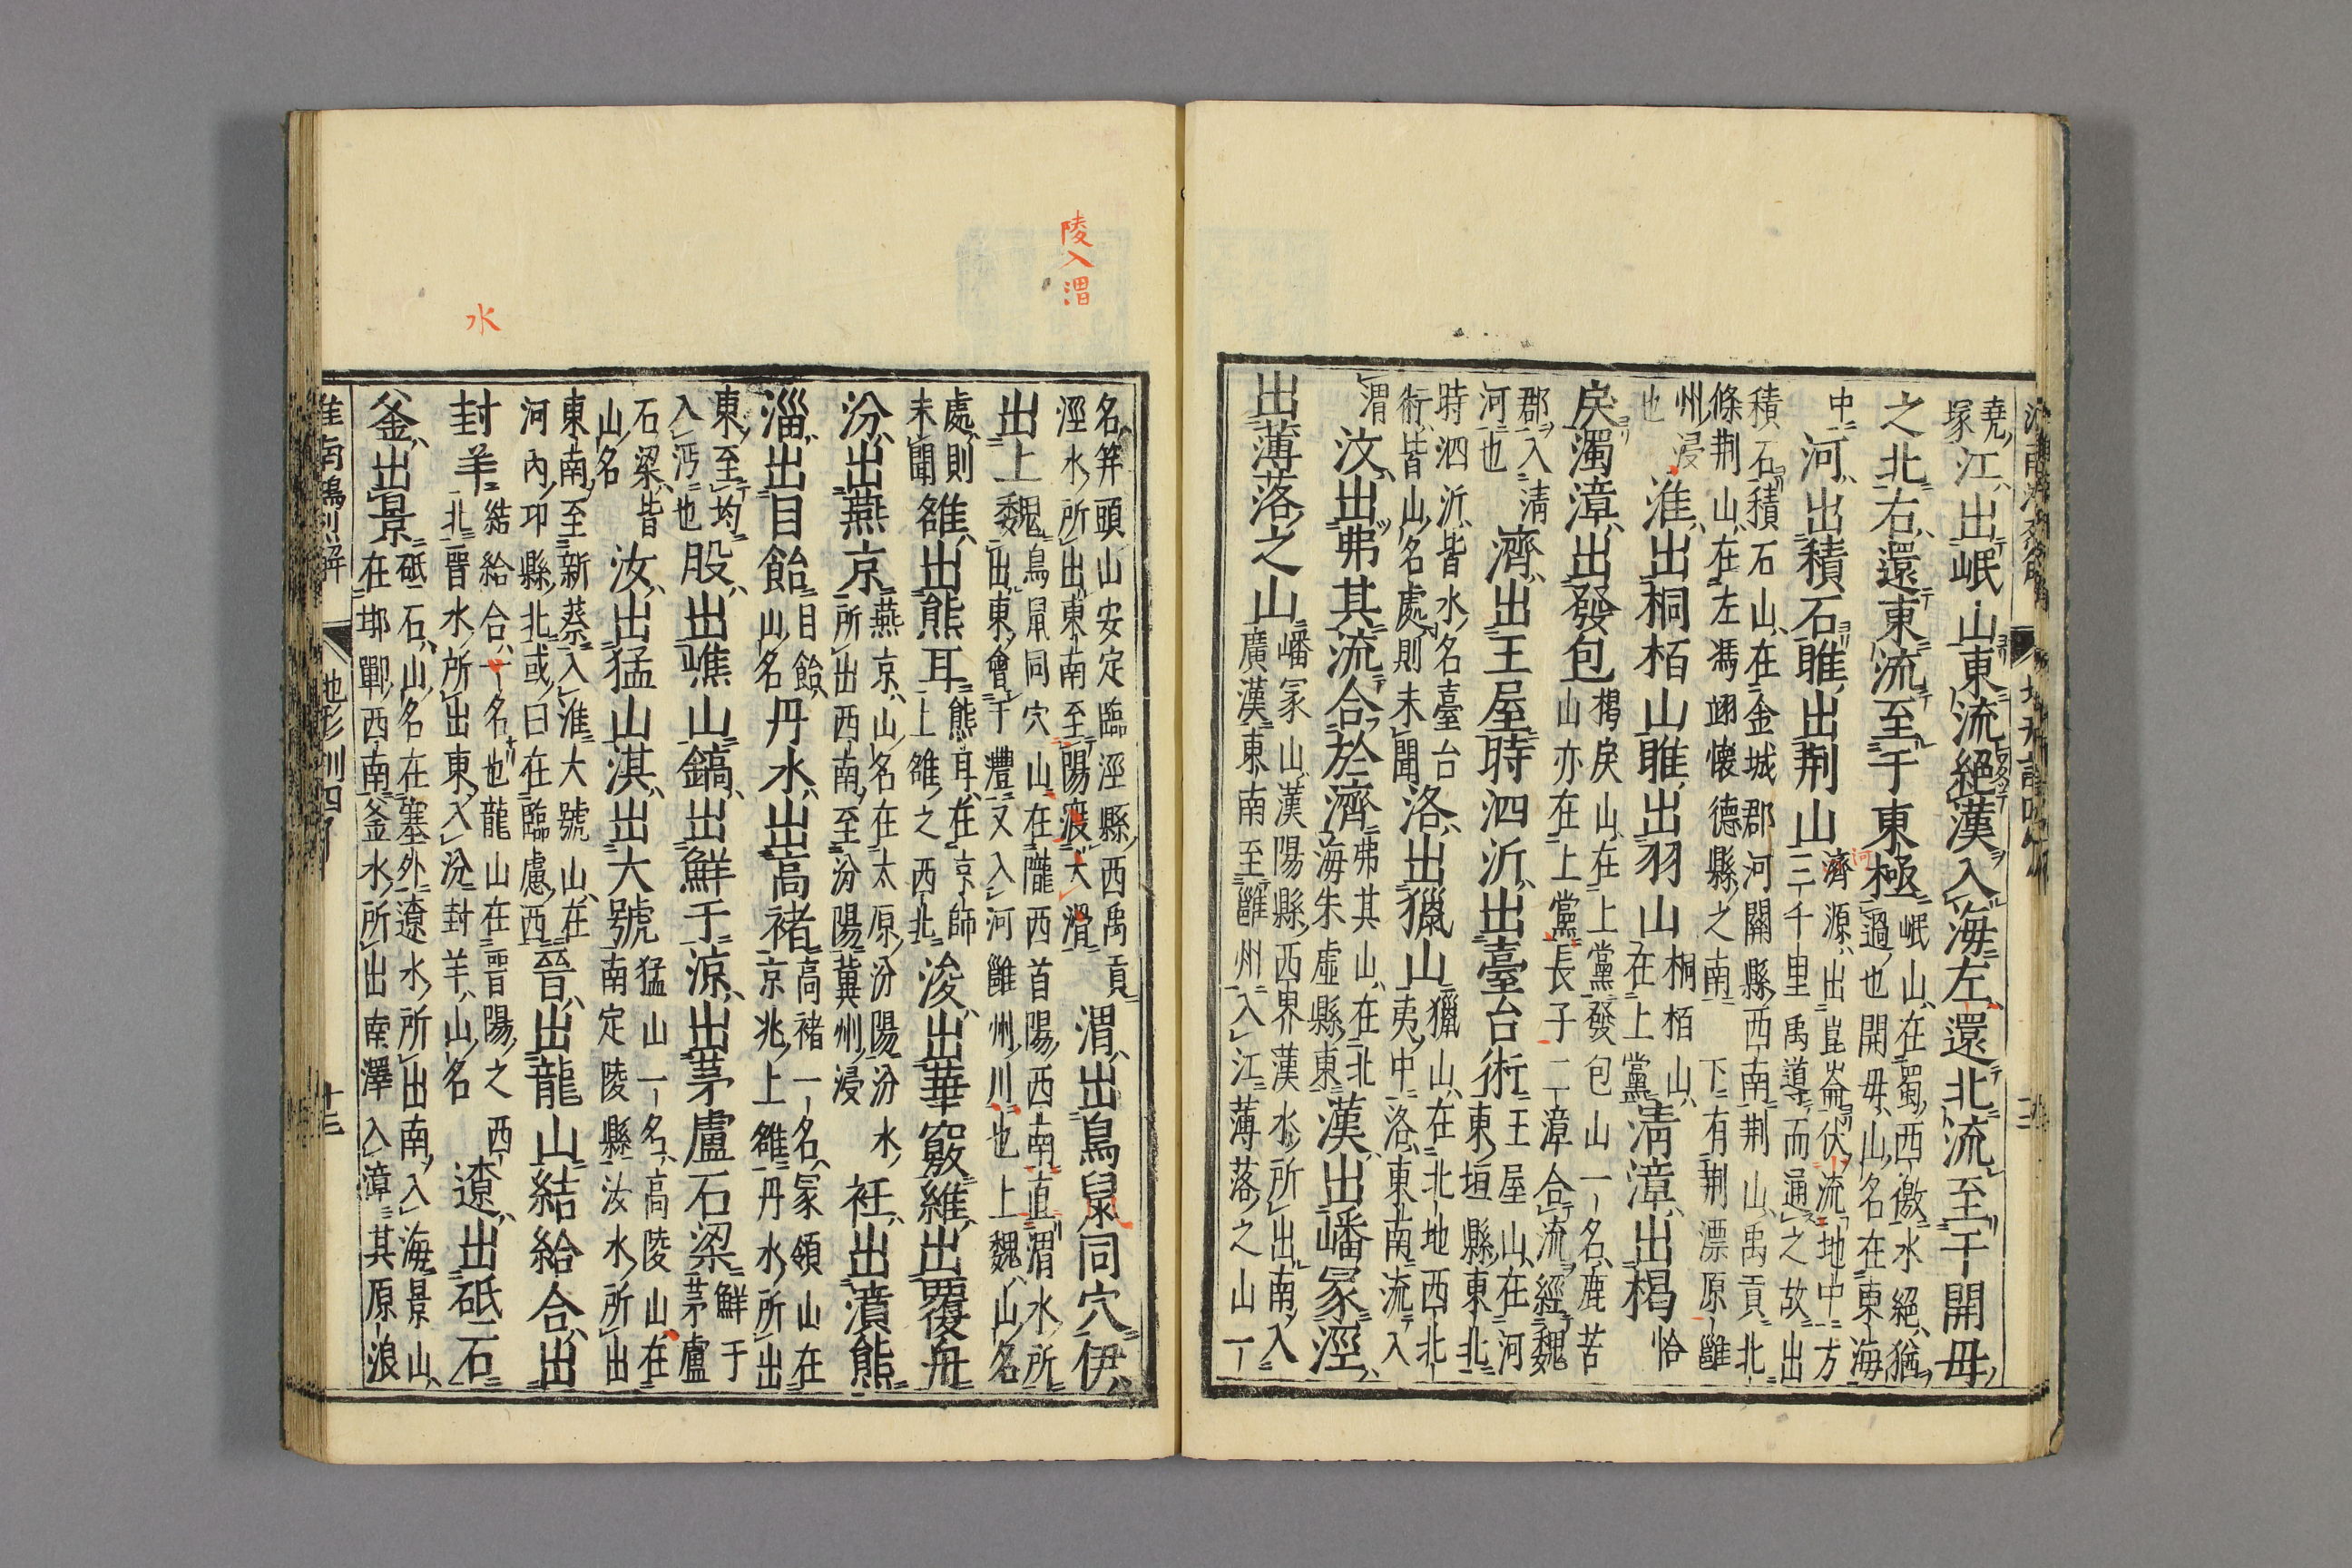 堯
塚
江出岷山東流絕漢入海左還北流至于開毋
之北右還東流至于東極
岷山在蜀西徼水絕猶
過也開毋山名在東海
河
中
河出積石睢出荊山
濟源出崑崙伏流地中方
三千里禹導而通之故出
積石積石山在金城郡河關縣西南荊山禹貢北
條荊山在左馮翊懷德縣之南下有荊漂原雝
州浸
也
淮出桐栢山睢出羽山
桐栢山
在上黨
清漳出楬
恰
戾濁漳出發包
楬戾山在上黨發包山一名鹿苦
山亦在上黨長子二漳合流經魏
郡入清
河也
濟出王屋時泗沂出臺台術
王屋山在河
東垣縣東北
時泗沂皆水名臺台
術皆山名處則未聞
洛出獵山
獵山在北地西北
夷中洛東南流入
渭
汶出弗其流合於濟
弗其山在北
海朱虛縣東
漢出嶓冢涇
出薄落之山
嶓冢山漢陽縣西界漢水所出南入
廣漢東南至雝州入江薄落之山一
陵入渭
名笄頭山安定臨涇縣西禹貢
涇水所出東南至陽渡大滑
渭出鳥鼠同穴伊
出上魏
鳥鼠同穴山在隴西首陽西南直渭水所
出東會于灃又入河雝州川也上魏山名
處則
未聞
雒出熊耳
熊耳在京師
上雒之西北
浚出華竅維出覆舟
汾出燕京
燕京山名在太原汾陽汾水
所出西南至汾陽冀州浸
衽出濆熊
淄出目飴
目飴
山名
丹水出高褚
高褚一名冢領山在
京兆上雒丹水所出
東至均
入沔也
股出嶕山鎬出鮮于涼出茅盧石梁
鮮于
茅盧
石梁皆
山名
汝出猛山淇出大號
猛山一名高陵山在
南定陵縣汝水所出
東南至新蔡入淮大號山在
河內卭縣北或曰在臨慮西
晉出龍山結給合出
水
封羊
結給合一名也龍山在晉陽之西
北晉水所出東入汾封羊山名
遼出砥石
釜出景
砥石山名在塞外遼水所出南入海景山
在邯鄲西南釜水所出南澤入漳其原浪
淮南鴻烈解
地形訓四
十三